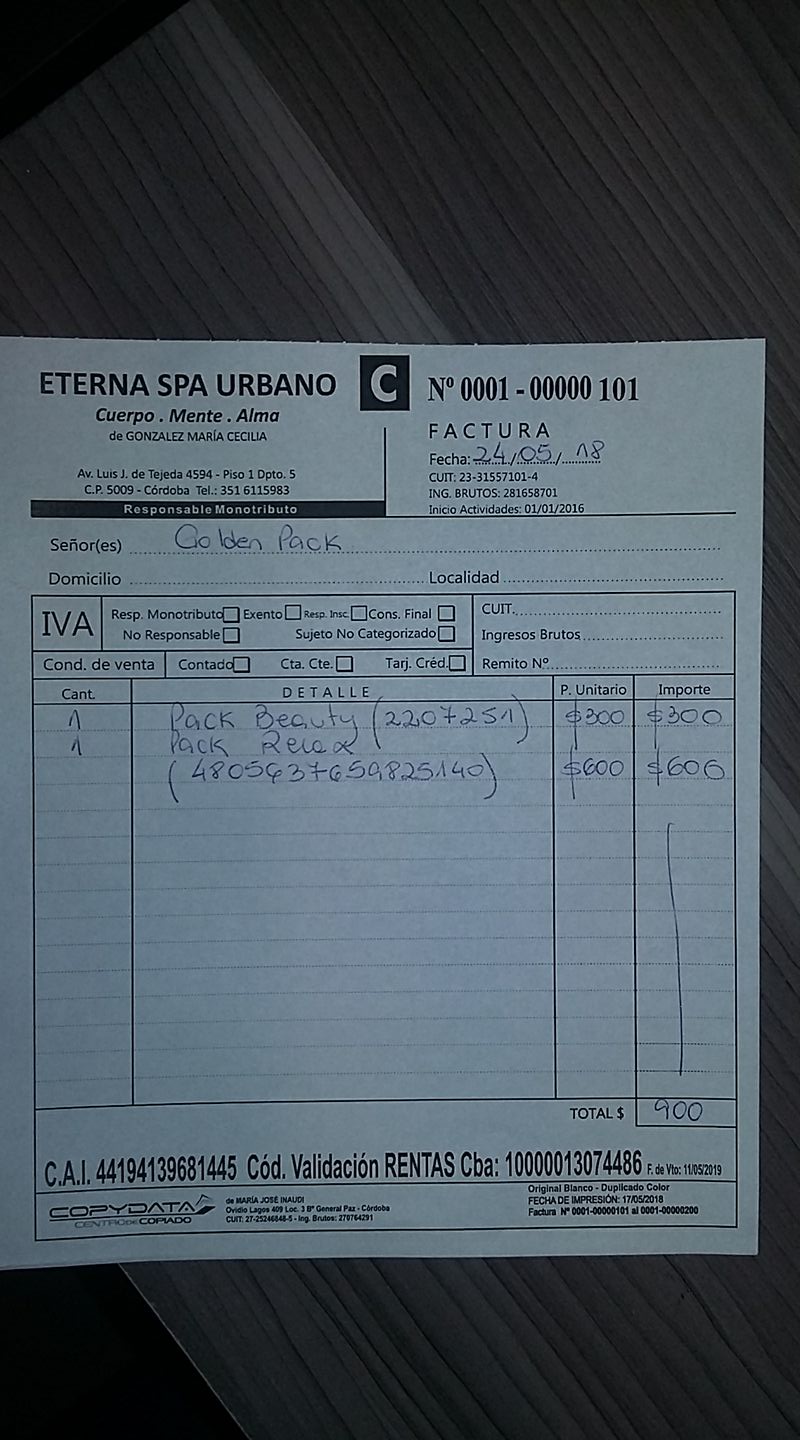 ETERNA SPA URBANO
Cuerpo . Mente . Alma
de GONZALEZ MARÍA CECILIA
Av. Luis J. de Tejeda 4594 - Piso 1 Dpto. 5
C.P. 5009 - Córdoba Tel.: 351 6115983
Responsable Monotributo
C
Nº 0001 - 00000 101
FACTURA
Fecha: 24/05/18
CUIT: 23-31557101-4
ING. BRUTOS: 281658701
Inicio Actividades: 01/01/2016
Señor(es) Golden Pack
Domicilio Localidad
IVA Resp. Monotributo Exento Resp. Insc. Cons. Final CUIT.
No Responsable Sujeto No Categorizado Ingresos Brutos
Cond. de venta Contado Cta. Cte. Tarj. Créd. Remito Nº
Cant. DETALLE P. Unitario Importe
1 Pack Beauty (2207251) $300 $300
1 Pack Relax
(4805637659825140) $600 $600
TOTAL $ 900
C.A.I. 44194139681445 Cód. Validación RENTAS Cba: 10000013074486 F. de Vto: 11/05/2019
COPYDATA
CENTRO DE COPIADO
de MARÍA JOSÉ INAUDI
Ovidio Lagos 409 Loc. 3 Bº General Paz - Córdoba
CUIT: 27-25246848-5 - Ing. Brutos: 270764291
Original Blanco - Duplicado Color
FECHA DE IMPRESIÓN: 17/05/2018
Factura Nº 0001-00000101 al 0001-00000200